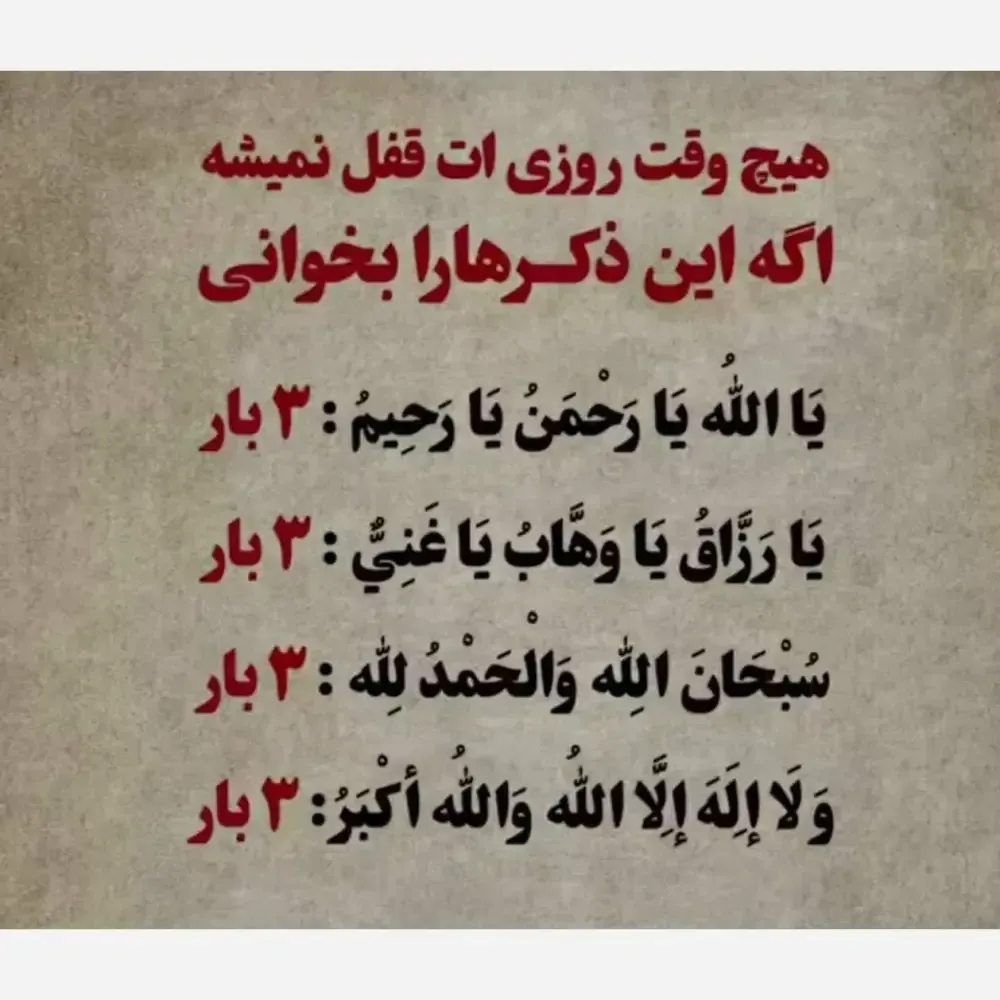 هیچ وقت روزی ات قفل نمیشه
اگه این ذکرهارا بخوانی
یَا اللهُ یَا رَحْمَنُ یَا رَحِیمُ : ۳ بار
یَا رَزَّاقُ یَا وَهَّابُ یَا غَنِيٌّ : ۳ بار
سُبْحَانَ اللِه وَالْحَمْدُ لِله : ۳ بار
وَلَا إِلَهَ إِلَّا اللهُ وَاللهُ أكْبَرُ: ۳ بار